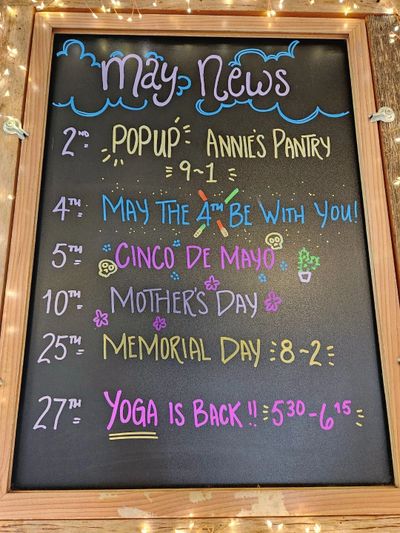 May News
2ND: POPUP: ANNIE'S PANTRY
9-1
4TH: MAY THE 4TH BE WITH YOU!
5TH: CINCO DE MAYO
10TH: MOTHER'S DAY
25TH: MEMORIAL DAY 8-2
27TH: YOGA IS BACK!! 530-615